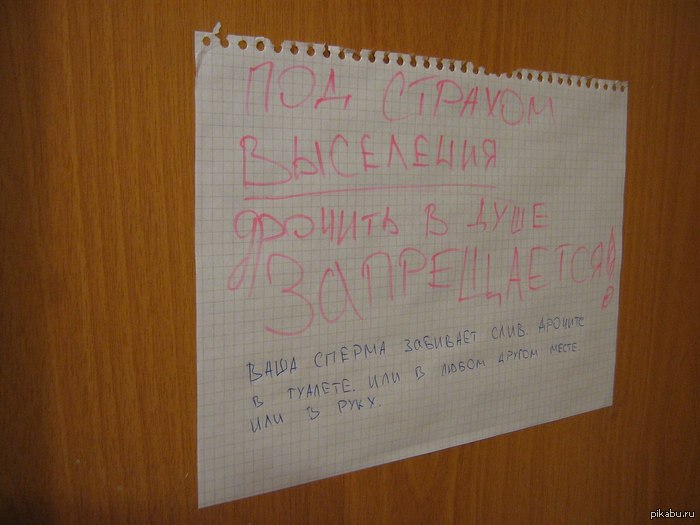 ПОД СТРАХОМ
ВЫСЕЛЕНИЯ
ДРОЧИТЬ В ДУШЕ
ЗАПРЕЩАЕТСЯ!
ВАША СПЕРМА ЗАБИВАЕТ СЛИВ. ДРОЧИТЕ
В ТУАЛЕТЕ. ИЛИ В ЛЮБОМ ДРУГОМ МЕСТЕ.
ИЛИ В РУКУ.
pikabu.ru